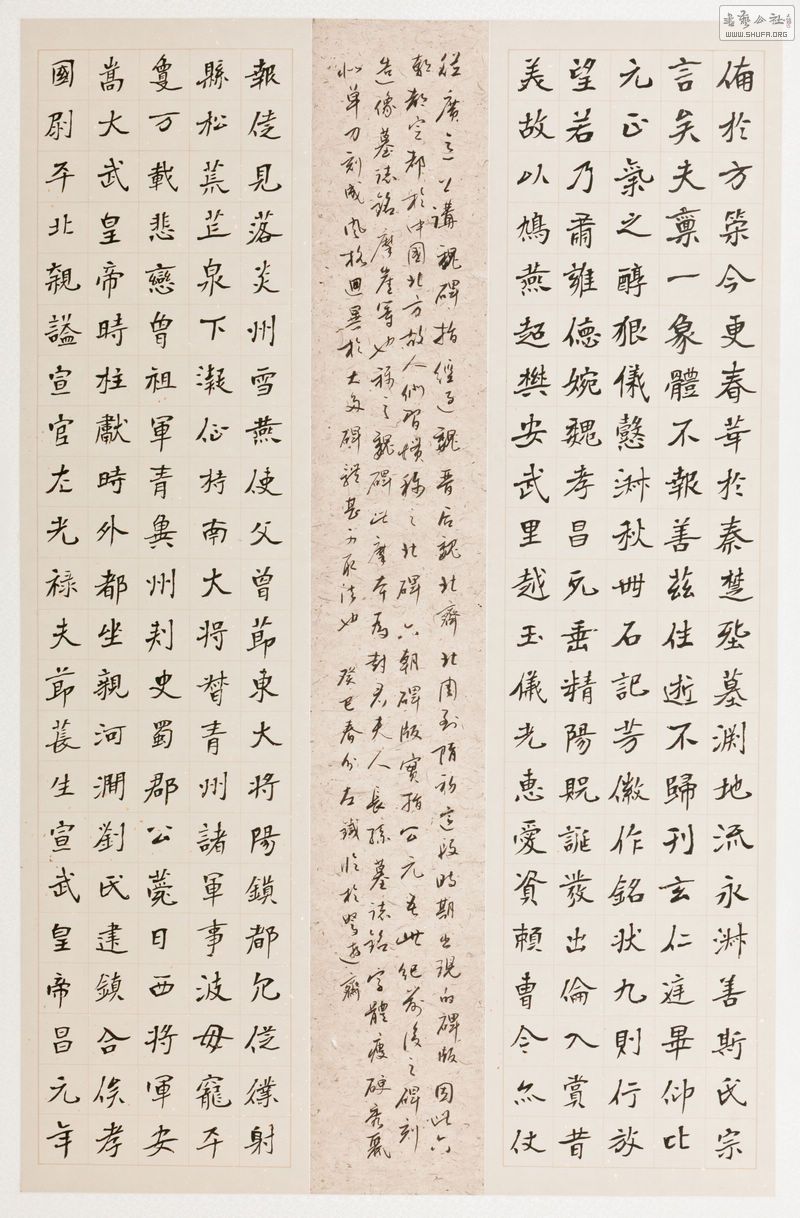 備於方策今更春華於秦楚墓渊地流永淋善斯氏宗
言矣夫稟一象體不報善茲住逝不歸刊玄仁庭畢仰比
元正氣之醇狠儀懿淋秋世石記芳徽作銘狀九則行放
望若乃肅雍德婉魏孝昌死垂精陽貺誕發出倫入賞昔
美故以鳩燕超樊安武里越玉儀光惠愛資賴曹令亦仗
從廣意上講魏碑指經過魏晉后魏北齊北周到隋初這段時期出現的碑版因此六
朝都定都於中國北方故人們習慣称之北碑六朝碑版實指公元五世紀前後之碑刻
造像墓誌銘摩崖等也称之魏碑此摩本為封君夫人長孫墓誌銘字體瘦硬
似單刀刻成風格迥異於大多碑體甚可取法也 癸巳春分左鐵临於遊齋
報徒見落炎州雪燕使父曾節東大將陽鎖都從射
縣松荒芷泉下凝征持南大將督青州諸軍事波毋寵平
夐万載悲戀曾祖軍青冀州刺史蜀郡公薨日西將軍安
嵩大武皇帝時柱獻時外都坐親河澗劉氏建鎮合侯孝
國尉平北親謚宣官左光祿夫節萇生宣武皇帝昌元年
書藝公社
WWW.SHUFA.ORG